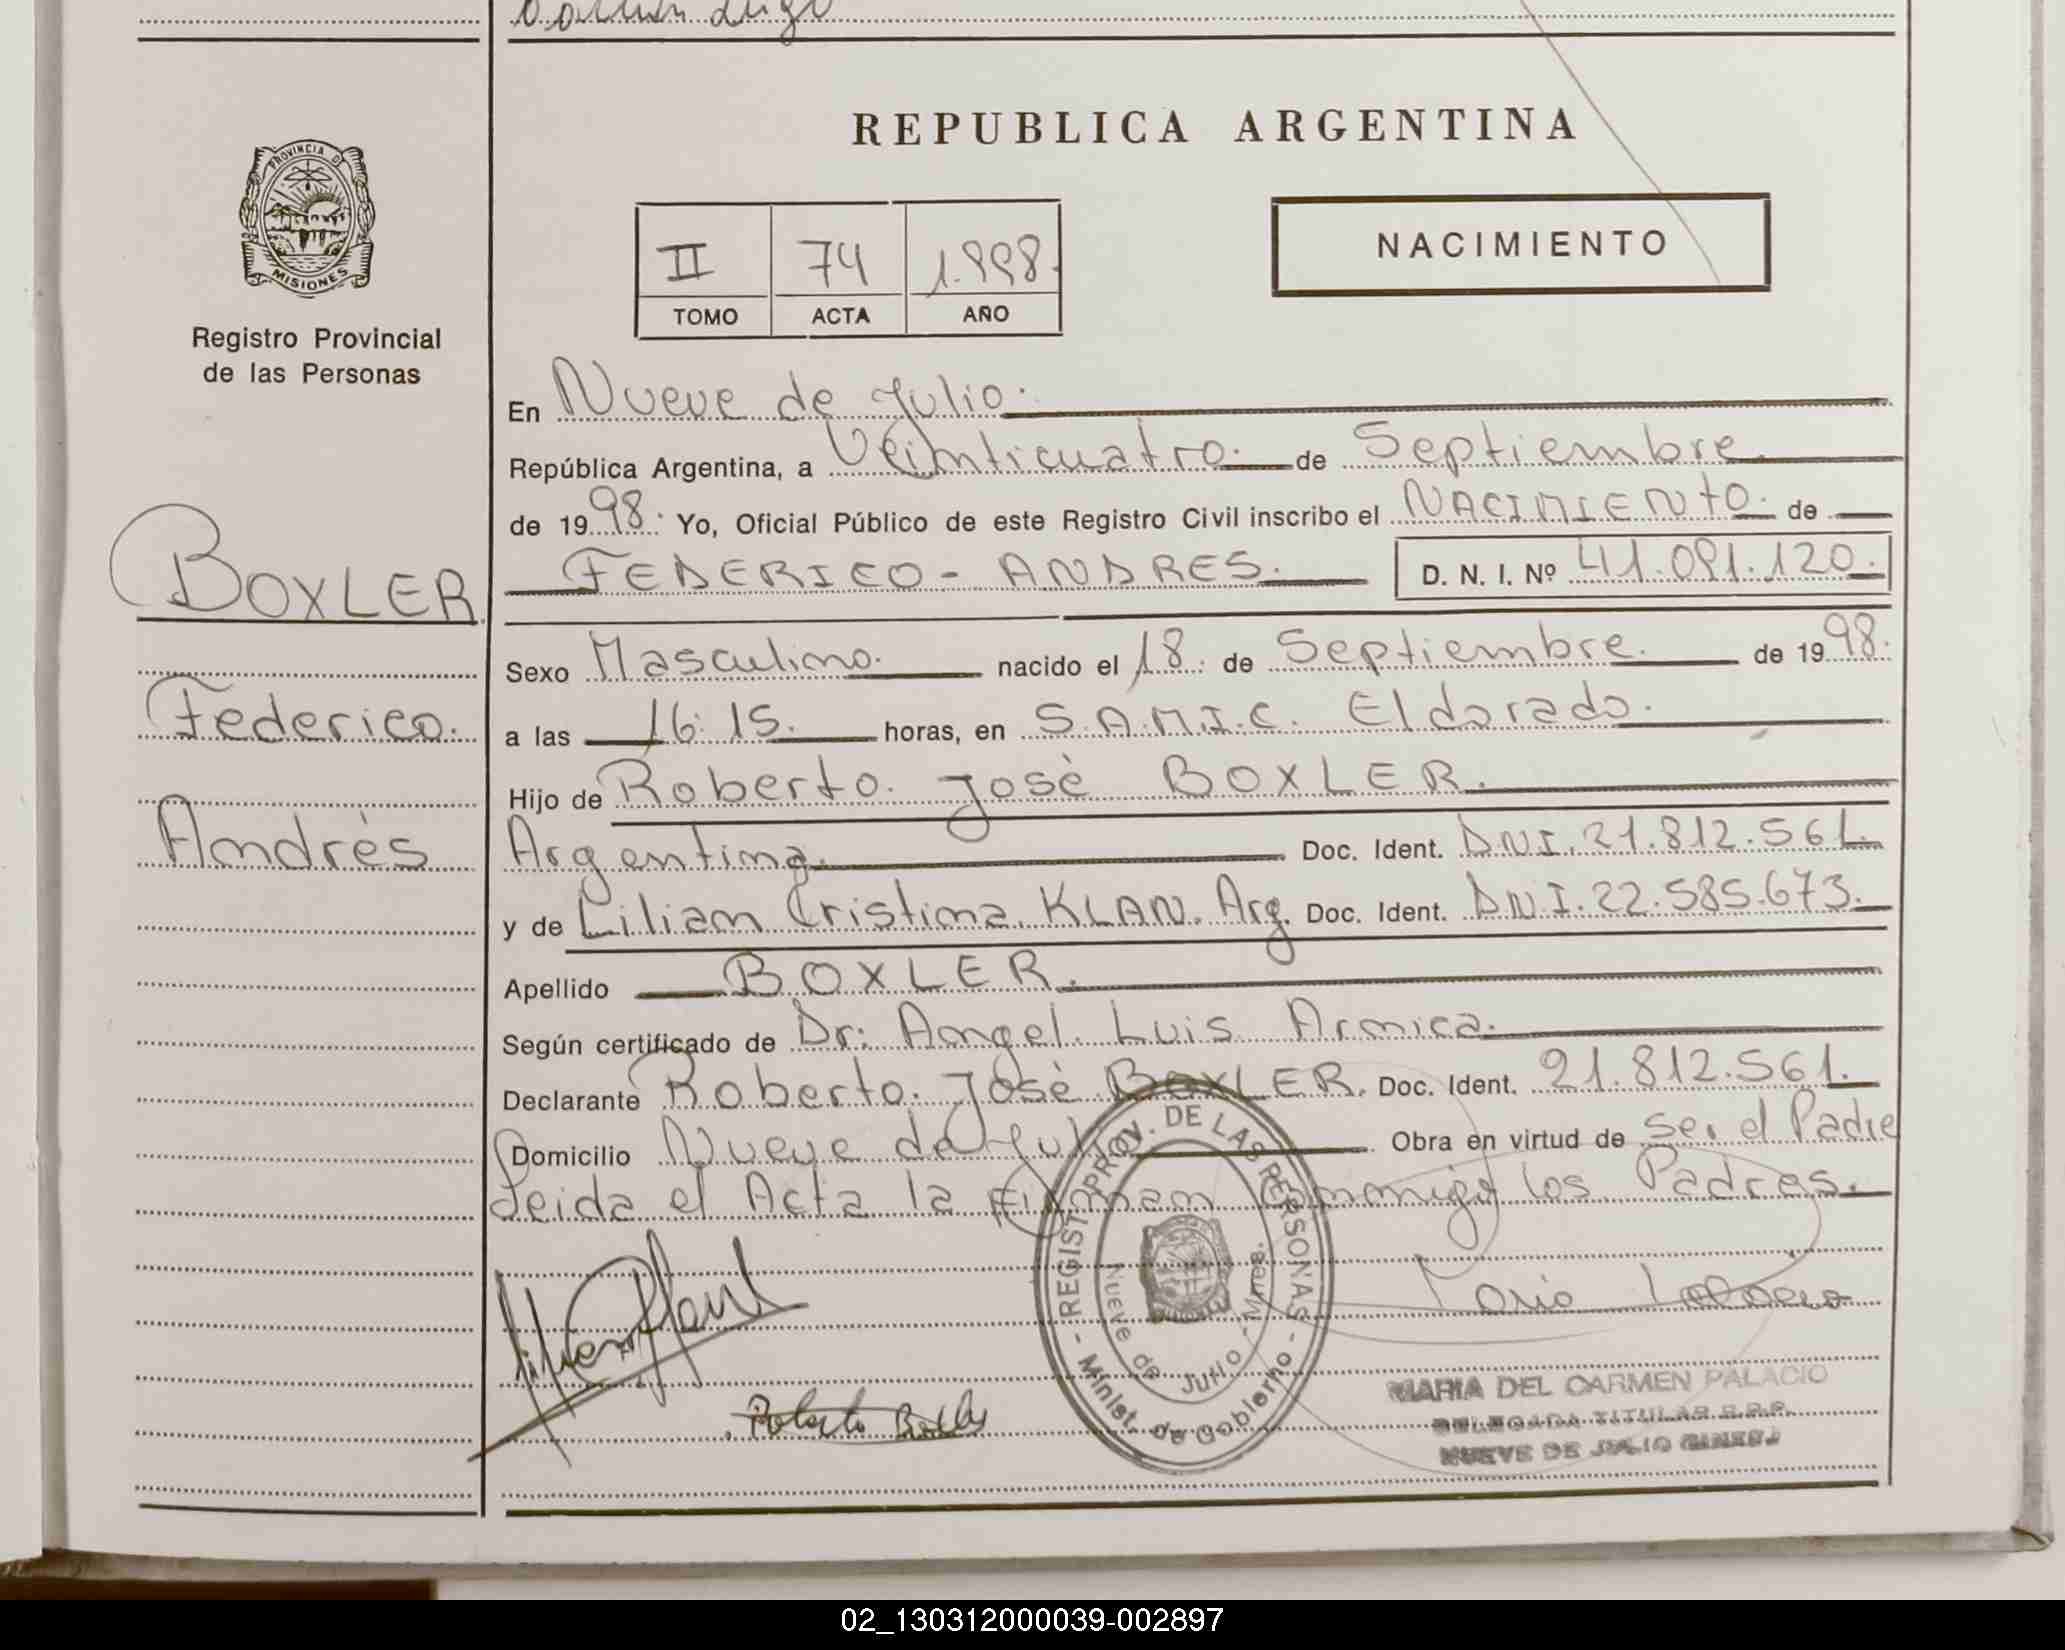 REPUBLICA ARGENTINA
PROVINCIA DE
MISIONES
Registro Provincial
de las Personas
II 74 1.998.
TOMO ACTA AÑO
NACIMIENTO
BOXLER.
Federico.
Andrés
En Nueve de Julio.
República Argentina, a Veinticuatro. de Septiembre.
de 1998. Yo, Oficial Público de este Registro Civil inscribo el NACIMIENTO. de
FEDERICO - ANDRES. D. N. I. Nº 41.091.120.
Sexo Masculino. nacido el 18. de Septiembre. de 1998.
a las 16:15. horas, en S.A.M.I.C. Eldorado.
Hijo de Roberto José BOXLER.
Argentina. Doc. Ident. DNI.21.812.561.
y de Lilian Cristina. KLAN. Arg. Doc. Ident. DNI.22.585.673.
Apellido BOXLER.
Según certificado de Dr: Angel Luis Arnica.
Declarante Roberto José BOXLER. Doc. Ident. 21.812.561.
Domicilio Nueve de Julio Obra en virtud de ser el Padre
Leida el Acta la Firman conmigo los Padres.
- REGIST. PROV. DE LAS PERSONAS -
Minist. de Gobierno
Nueve de Julio - Mnes.
Roberto Boxler
MARIA DEL CARMEN PALACIO
DELEGADA TITULAR R.P.P.
NUEVE DE JULIO
02_130312000039-002897